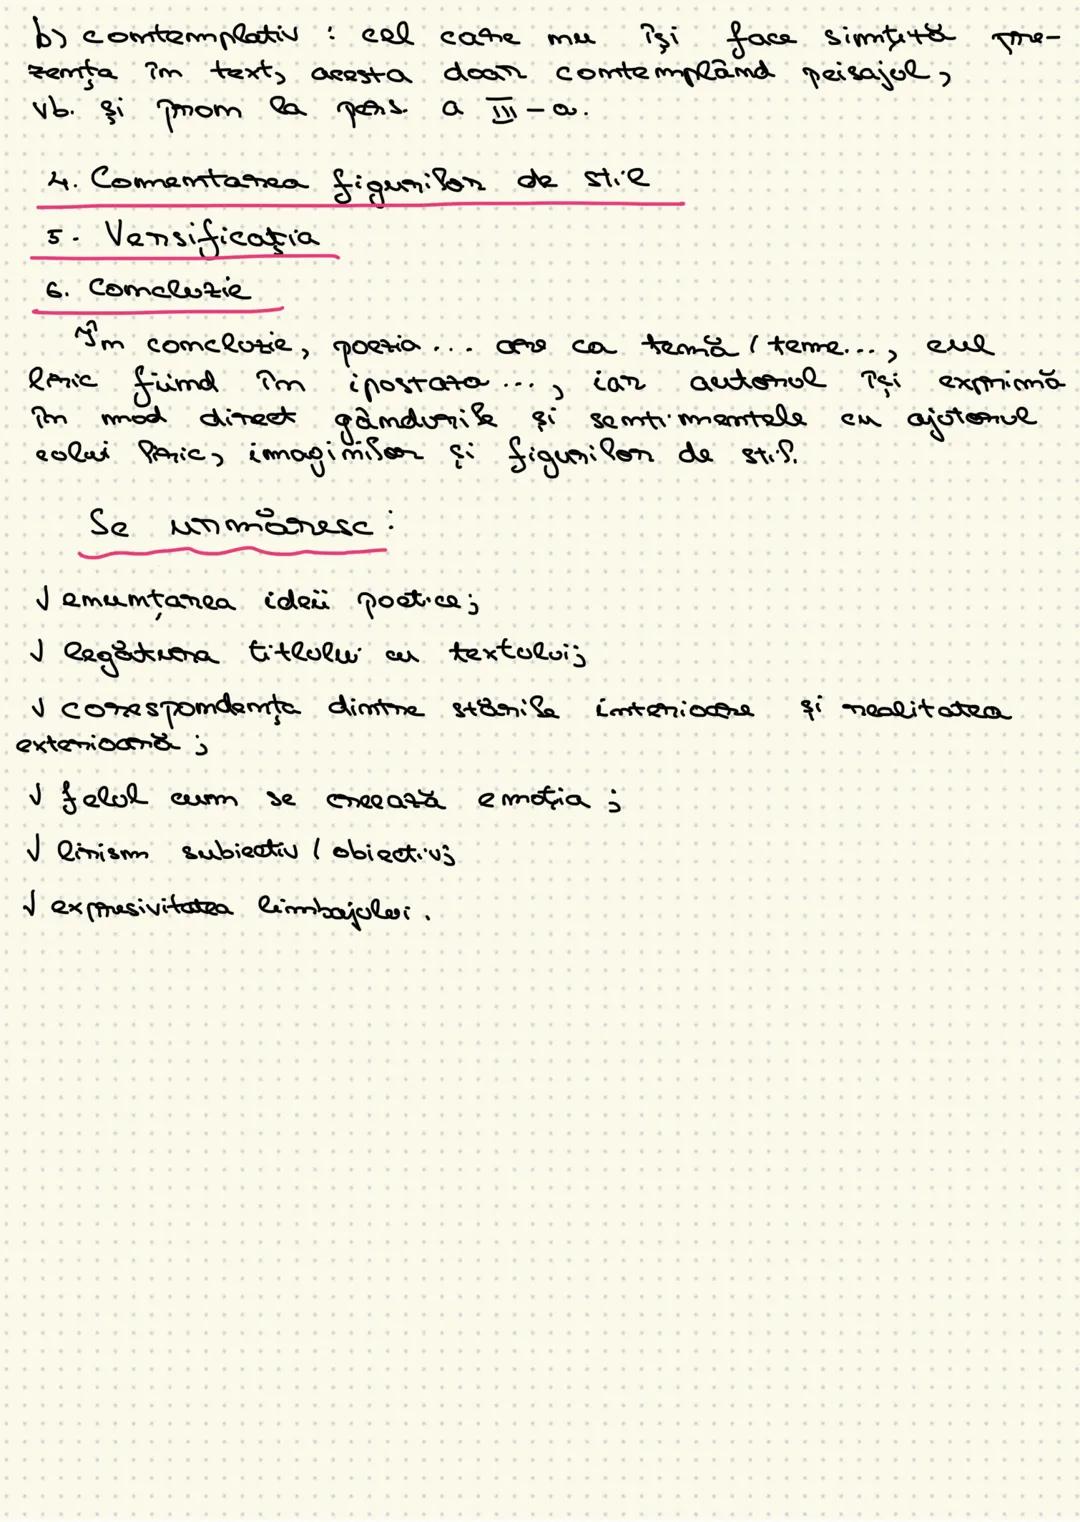 b) contemplativ : cel care nu își face simțită pre-
zența în text, acesta doar contemplând peisajul,
vb. și pron la pers. a III-a.
4. Comentarea figurilor de stil
5. Versificația
6. Concluzie
În concluzie, poezia... are ca temă / teme..., eul
liric fiind în ipostaza..., iar autorul își exprimă
în mod direct gândurile și sentimentele cu ajutorul
eolui liric, imaginilor și figurilor de stil.
Se urmăresc :
√ enunțarea ideii poetice;
√ legătura titlului cu textului;
√ corespondența dintre stările interioare și realitatea
exterioară ;
√ felul cum se creează emoția ;
√ lirism subiectiv / obiectiv;
√ expresivitatea limbajului.